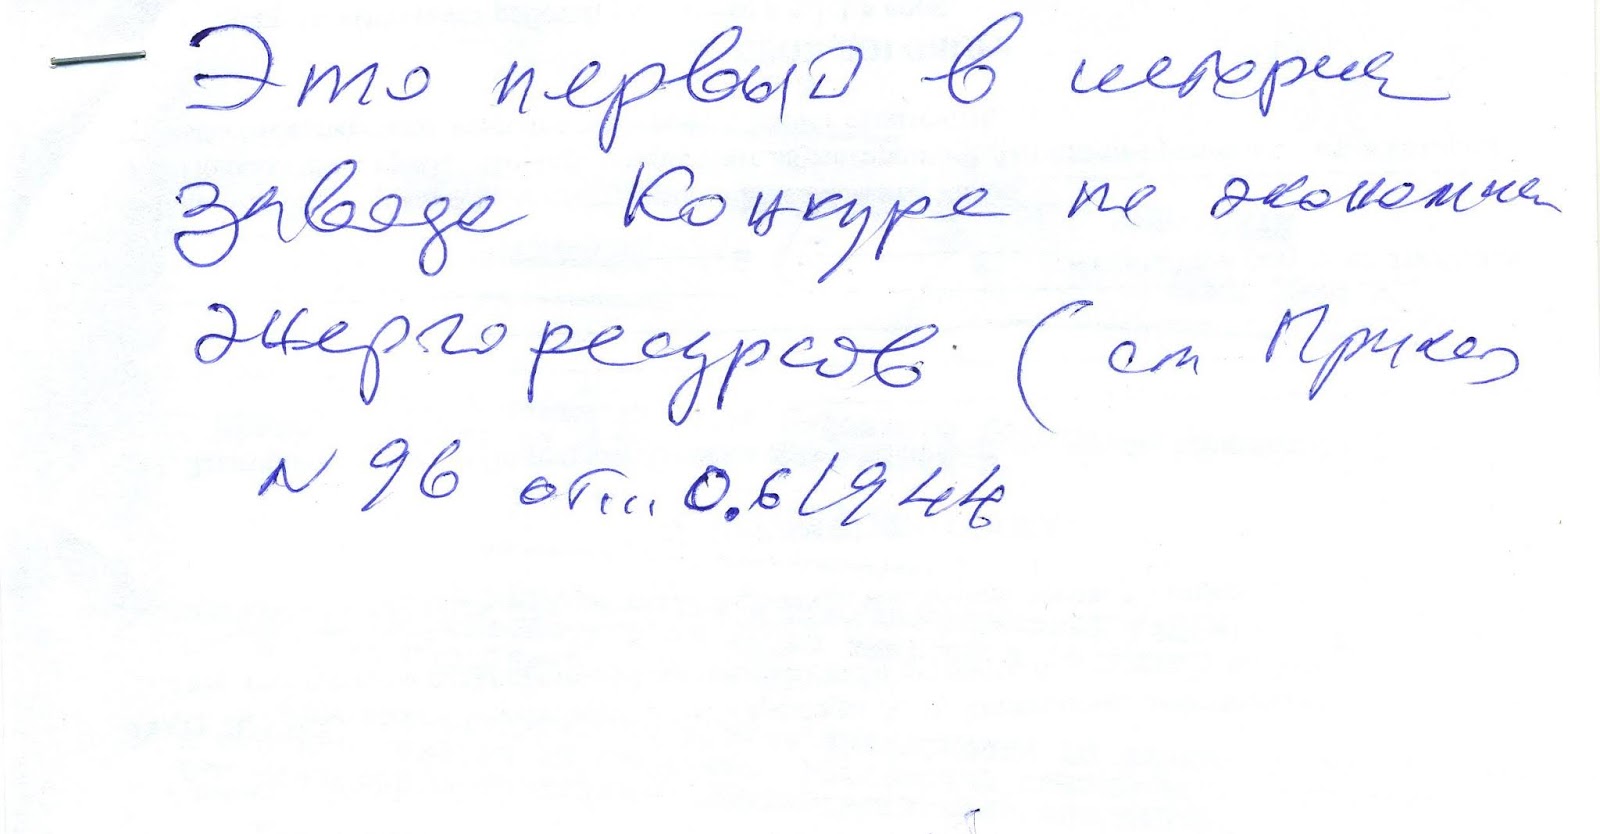 Это первый в истории
заводе Конкурс по экономии
энергоресурсов (см Приказ
N 96 от... 0.6 1944